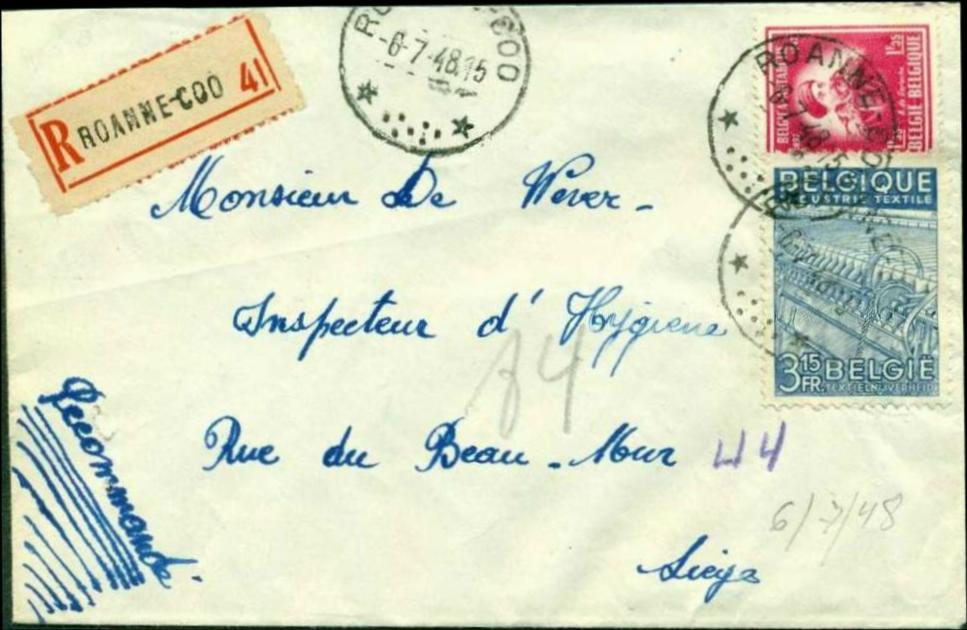 R ROANNE-COO 41
-6-7-48.15
ROANNE-COO
BELGIQUE
INDUSTRIE TEXTILE
3 15 FR. BELGIË
TEXTIELNIJVERHEID
BELGIE BELGIQUE
Monsieur De Wever -
Inspecteur d' Hygiene
Rue du Beau-Mur 44
6/7/48
Liège
Recommandé.